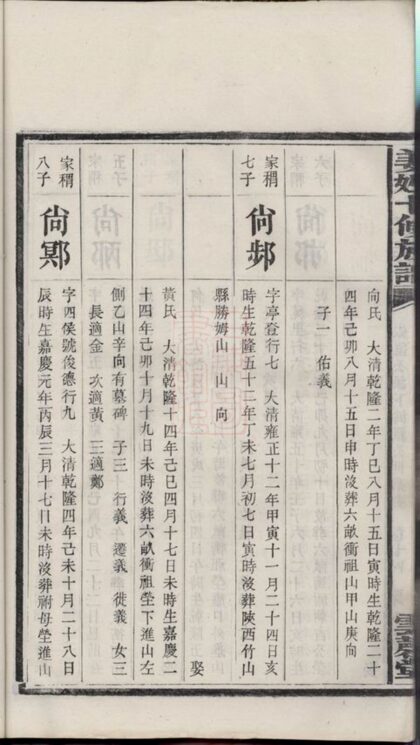 向氏　大清乾隆二年丁巳八月十五日寅時生乾隆二十
四年己卯八月十五日申時沒葬六畝衝祖山甲山庚向
子一　佑義
家稩
七子
尙䣊
字亭登行七　大清雍正十二年甲寅十一月二十四日亥
時生乾隆五十二年丁未七月初七日寅時沒葬陝西竹山
縣勝姆山　山　向　娶
黃氏　大清乾隆十四年己巳四月十七日未時生嘉慶二
十四年己卯十月十九日未時沒葬六畝衝祖塋下進山左
側乙山辛向有墓碑　子三　行義　遷義　徙義　女三
長適金　次適黃　三適鄭
家稩
八子
尙鄍
字四侯號俊德行九　大清乾隆四年己未十月二十八日
辰時生嘉慶元年丙辰三月十七日未時沒葬祔母塋進山